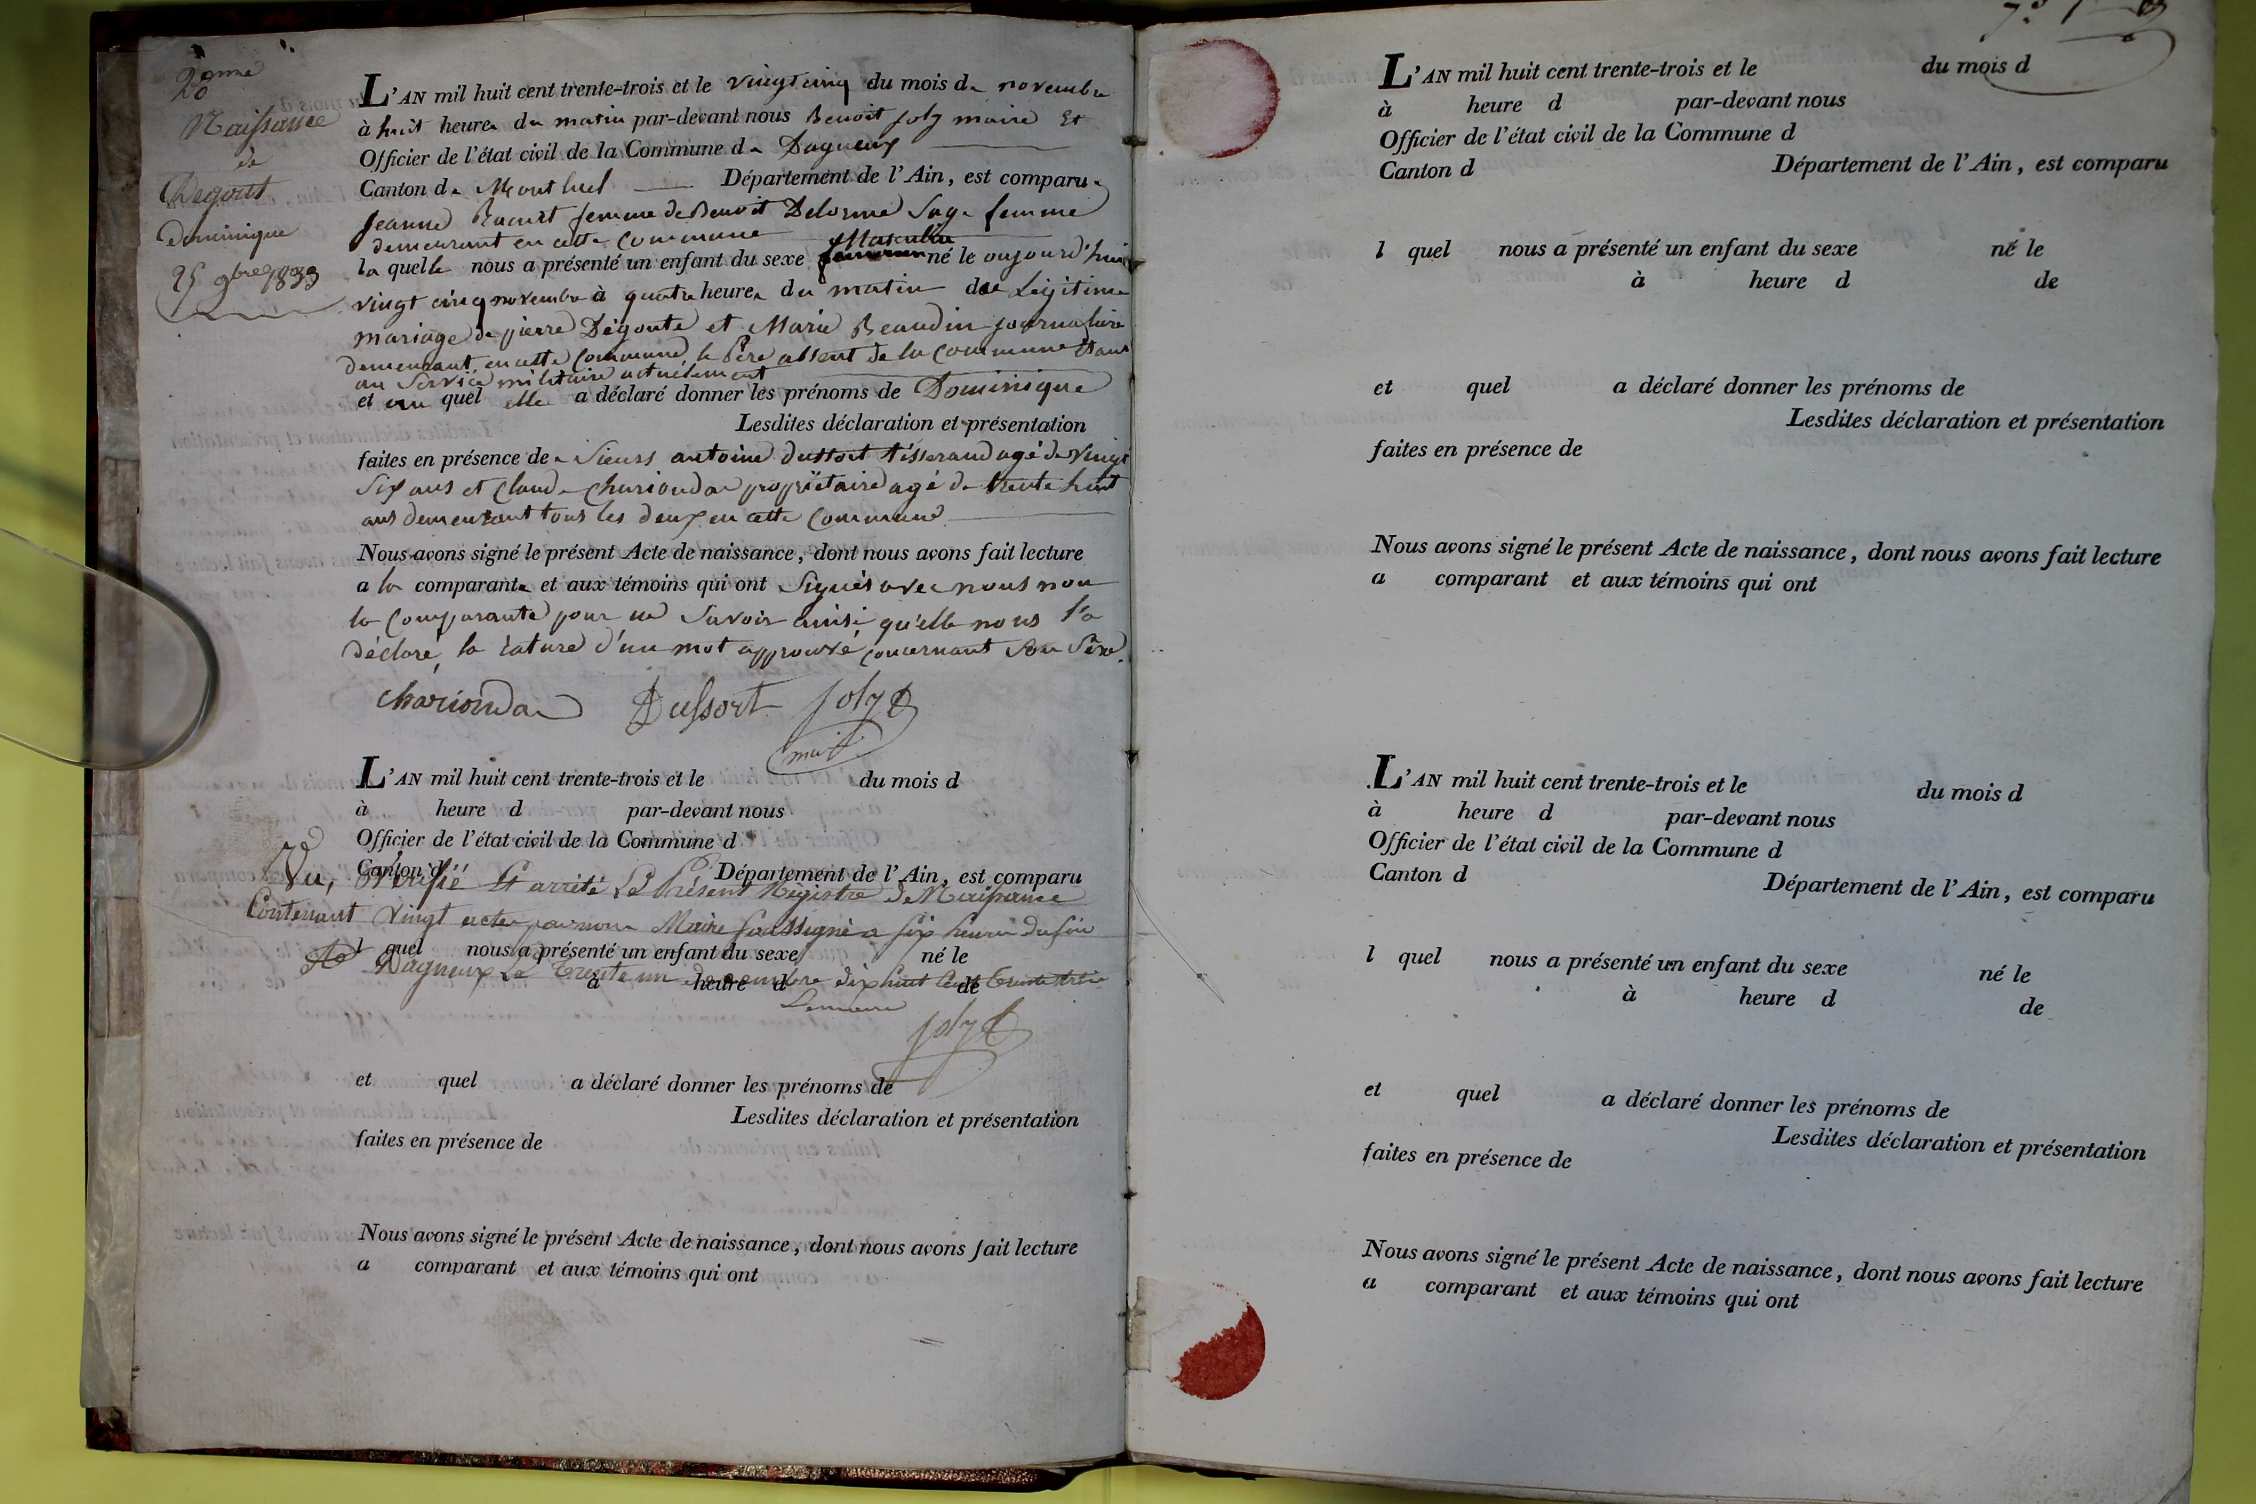 20eme
Naissance
de
Degout
Dominique
25 9bre 1833
L'AN mil huit cent trente-trois et le vingt cinq du mois de novembre
à huit heures du matin par-devant nous Benoit Joly maire Et
Officier de l'état civil de la Commune de Dagneux
Canton de Montluel Département de l'Ain, est comparue
Jeanne femme de Benoit Delorme Sage femme
demeurant en cette Commune
Masculin
la quelle nous a présenté un enfant du sexe feminin né le aujourd'hui
vingt cinq novembre à quatre heures du matin de Légitime
mariage de pierre Dégoute et Marie Beaudin journalière
demeurant en cette Commune, le Père absent de la Commune étant
au Service militaire actuelement
et au quel elle a déclaré donner les prénoms de Dominique
Lesdites déclaration et présentation
faites en présence de Sieurs antoine dussort tisserand agé de vingt
Six ans et Claude Charionda propriétaire agé de trente huit
ans demeurant tous les deux en cette Commune
Nous avons signé le présent Acte de naissance, dont nous avons fait lecture
a la comparante et aux témoins qui ont Signés avec nous non
la Comparante pour ne Savoir ainsi qu'elle nous l'a
déclaré, la rature d'un mot approuvé concernant Son Sexe.
Charionda Dussort Joly B
maire
L'AN mil huit cent trente-trois et le du mois d
à heure d par-devant nous
Officier de l'état civil de la Commune d
Canton d Département de l'Ain, est comparu
Vu, Vérifié Et arrêté Le Présent Régistre de Naissance
Contenant Vingt actes par nous Maire Soussigné a six heures du soir
l quel nous a présenté un enfant du sexe né le
A Dagneux Le Trente un decembre dix huit Cent Trente trois
à heure d de
Le maire
Joly B
et quel a déclaré donner les prénoms de
Lesdites déclaration et présentation
faites en présence de
Nous avons signé le présent Acte de naissance, dont nous avons fait lecture
a comparant et aux témoins qui ont
L'AN mil huit cent trente-trois et le du mois d
à heure d par-devant nous
Officier de l'état civil de la Commune d
Canton d Département de l'Ain, est comparu
l quel nous a présenté un enfant du sexe né le
à heure d de
et quel a déclaré donner les prénoms de
Lesdites déclaration et présentation
faites en présence de
Nous avons signé le présent Acte de naissance, dont nous avons fait lecture
a comparant et aux témoins qui ont
L'AN mil huit cent trente-trois et le du mois d
à heure d par-devant nous
Officier de l'état civil de la Commune d
Canton d Département de l'Ain, est comparu
l quel nous a présenté un enfant du sexe né le
à heure d de
et quel a déclaré donner les prénoms de
Lesdites déclaration et présentation
faites en présence de
Nous avons signé le présent Acte de naissance, dont nous avons fait lecture
a comparant et aux témoins qui ont